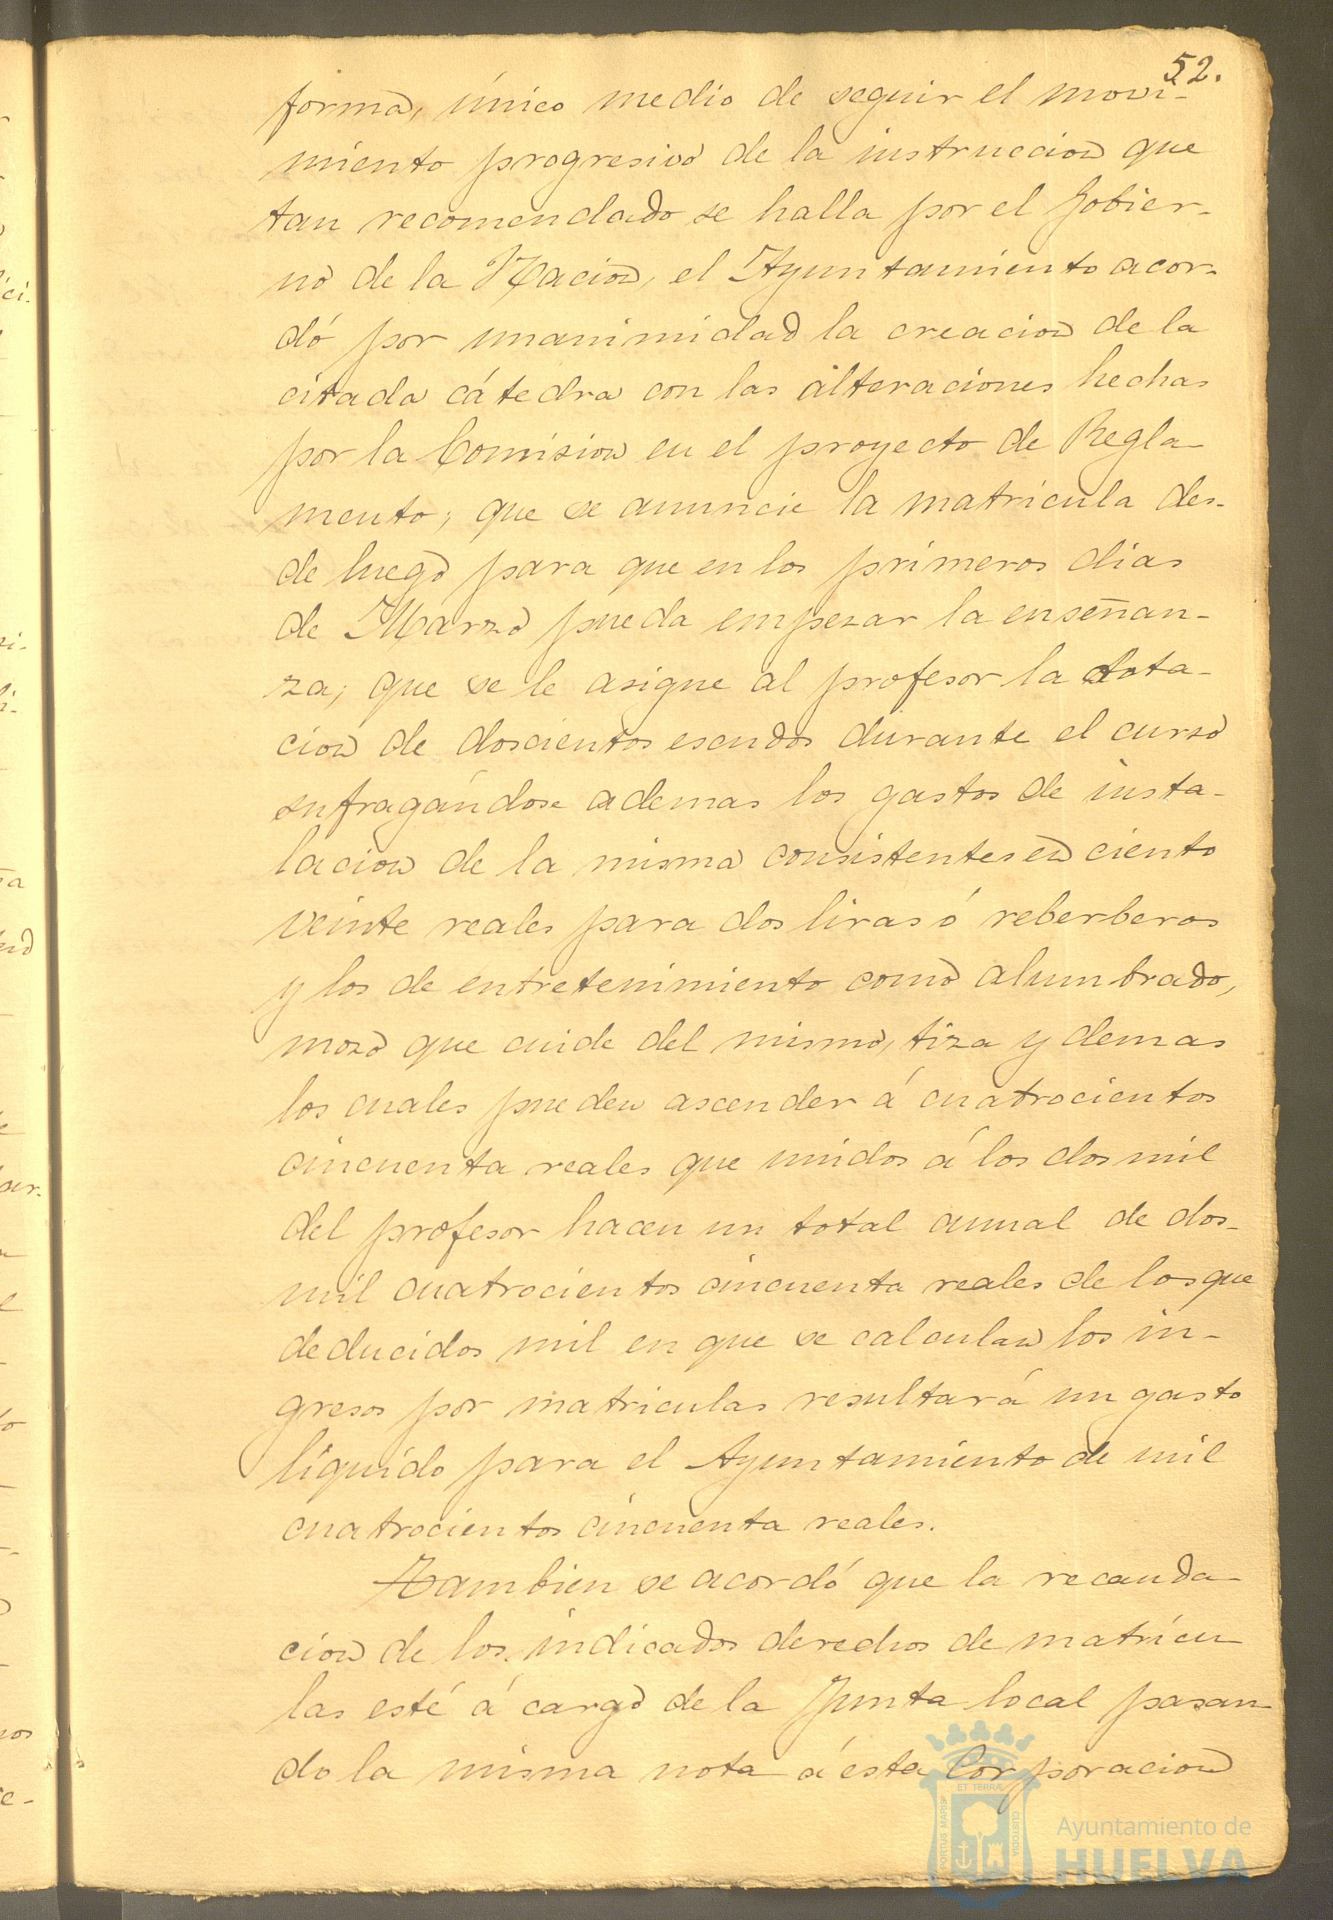 52.
forma, único medio de seguir el movi-
miento progresivo de la instruccion que
tan recomendado se halla por el Gobier-
no de la Nacion, el Ayuntamiento acor-
dó por unanimidad la creacion de la
citada cátedra con las alteraciones hechas
por la Comision en el proyecto de Regla-
mento; que se anuncie la matricula des-
de luego para que en los primeros dias
de Marzo pueda empezar la enseñan-
za; que se le asigne al profesor la dota-
cion de doscientos escudos durante el curso
sufragándose ademas los gastos de insta-
lacion de la misma consistentes en ciento
veinte reales para dos liras ó reberberos
y los de entretenimiento como alumbrado,
mozo que cuide del mismo, tiza y demas
los cuales pueden ascender á cuatrocientos
cincuenta reales que unidos á los dos mil
del profesor hacen un total anual de dos-
mil cuatrocientos cincuenta reales de los que
deducidos mil en que se calculan los in-
gresos por matriculas resultará un gasto
líquido para el Ayuntamiento de mil
cuatrocientos cincuenta reales.
Tambien se acordó que la recauda-
cion de los indicados derechos de matrícu-
las esté á cargo de la Junta local pasan-
do la misma nota á esta Corporacion
ET TERRÆ
PORTUS MARIS
CUSTODIA
Ayuntamiento de
HUELVA